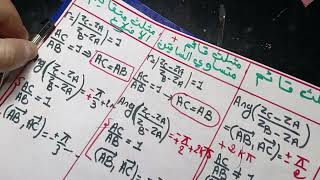 مثلث متقايس
الأضلاع
r=|zc-zA/zB-zA|=1
AC/AB=1 → AC=AB
Arg(zc-zA/zB-zA)=∓π/3+2kπ
AC/AB=1
(AB, AC)=∓π/3
مثلث قائم +
متساوي الساقين
r=|zc-zA/zB-zA|=1
AC/AB=1 → AC=AB
Arg(zc-zA/zB-zA)=∓π/2+2kπ
AC/AB=1
(AB, AC)=∓π/2
مثلث قائم
Arg(zc-zA/zB-zA)=∓π/2+2kπ
=(AB, AC)=±π/2
AC/AB≠1